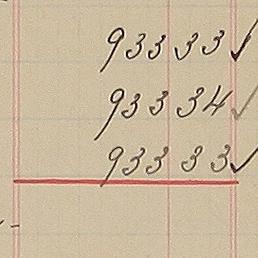 933 33 ✓
933 34 ✓
933 33 ✓